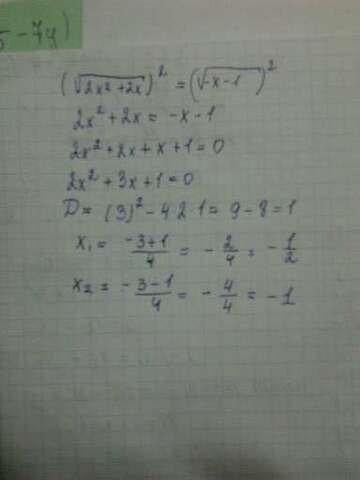 5 - 7y)
(√2x² + 2x)² = (√-x - 1)²
2x² + 2x = -x - 1
2x² + 2x + x + 1 = 0
2x² + 3x + 1 = 0
D = (3)² - 4·2·1 = 9 - 8 = 1
x₁ = -3+1/4 = -2/4 = -1/2
x₂ = -3-1/4 = -4/4 = -1